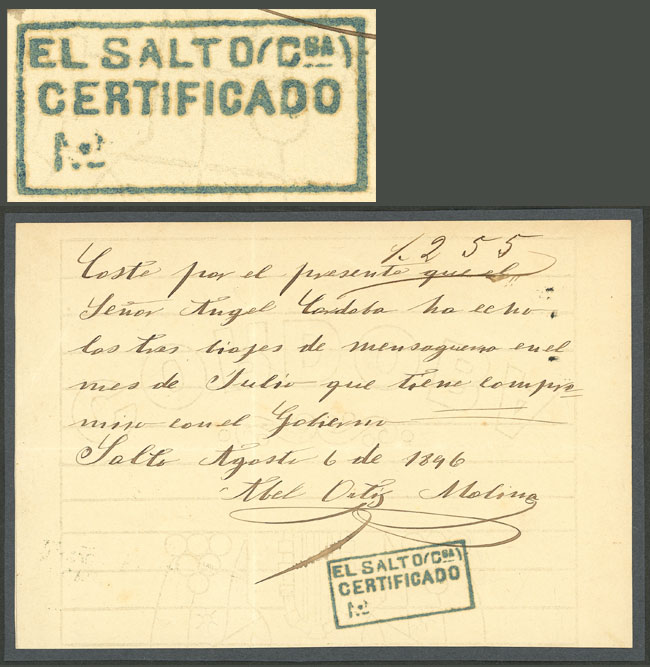 EL SALTO (CBA)
CERTIFICADO
No
1.255
Coste por el presente que el
Señor Angel Cordoba ha echo
los tres biajes de mensaguero en el
mes de Julio que tiene compro-
miso con el Gobierno
Salto Agosto 6 de 1896
Abel Ortiz Molina
EL SALTO (CBA)
CERTIFICADO
No